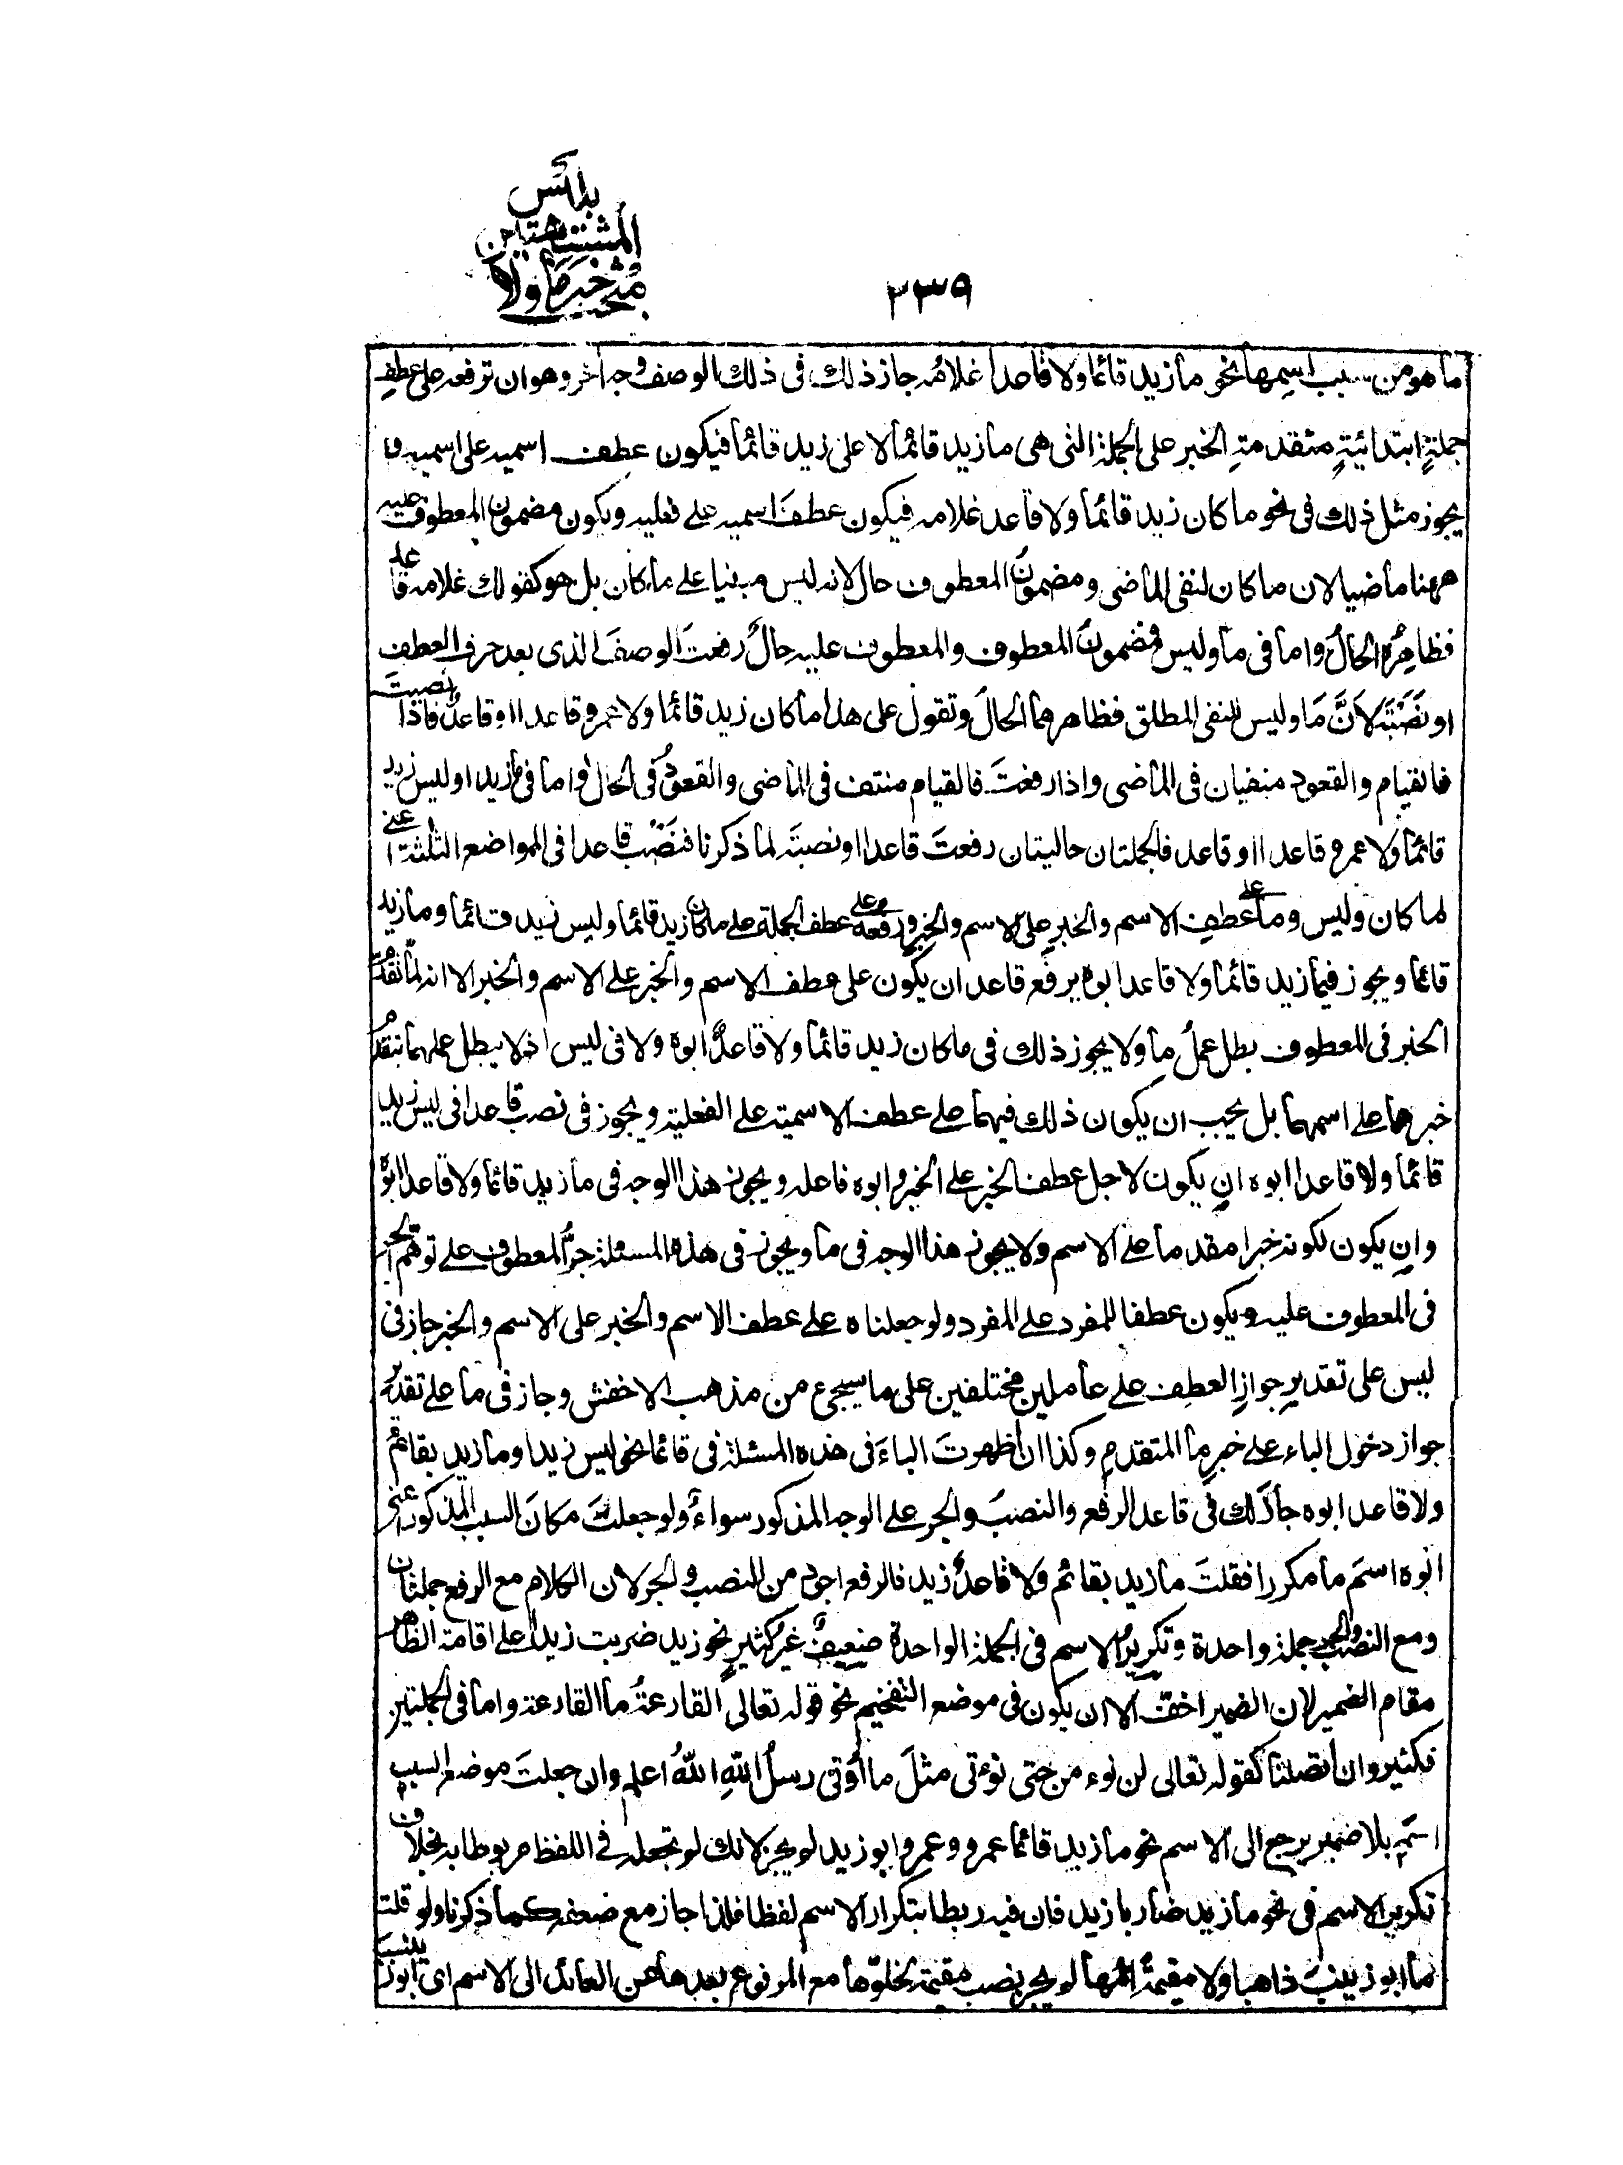 مبحث خبر ما ولا
المشبهتين
بليس
٢٣٩
ما هو من سبب اسمها نحو ما زيد قائما ولا قاعدا غلامه جاز ذلك في ذلك الوصف وجه آخر وهو ان ترفعه على عطف
جملة ابتدائية متقدمة الخبر على الجملة التى هى ما زيد قائما لا على زيد قائما فيكون عطف اسميه على اسميه وقد
يجوز مثل ذلك فى نحو ما كان زيد قائما ولا قاعد غلامه فيكون عطف اسميه على فعليه ويكون مضمون المعطوف عليه
ههنا ماضيا لان ما كان لنفى الماضى ومضمون المعطوف حال لانه ليس مبنيا على ما كان بل هو كقولك غلامه قاعد
فظاهره الحال واما فى ما وليس فمضمون المعطوف والمعطوف عليه حال رفعت الوصف الذى بعد حرف العطف
او نصبته لانّ ما وليس للنفى المطلق فظاهرهما الحال وتقول على هذا ما كان زيد قائما ولا عمرو قاعدا او قاعد فاذا نصبت
فالقيام والقعود منفيان فى الماضى واذا رفعت فالقيام منتف فى الماضى والقعود فى الحال واما فى ما زيد او ليس زيد
قائما ولا عمرو قاعدا او قاعد فالجملتان حاليتان رفعت قاعدا او نصبته لما ذكرنا فنصب قاعدا فى المواضع الثلثة اعنى
لما كان وليس وما على عطف الاسم والخبر على الاسم والخبر ورفعه على عطف الجملة على ما كان زيد قائما وليس زيد قائما وما زيد
قائما ويجوز فيما زيد قائما ولا قاعد ابوه برفع قاعد ان يكون على عطف الاسم والخبر على الاسم والخبر الا انه لما تقدم
الخبر فى المعطوف بطل عمل ما ولا يجوز ذلك فى ما كان زيد قائما ولا قاعد ابوه ولا فى ليس اذ لا يبطل عملهما بتقدم
خبرهما على اسمهما بل يجب ان يكون ذلك فيهما على عطف الاسمية على الفعلية ويجوز فى نصب قاعدا فى ليس زيد
قائما ولا قاعدا ابوه ان يكون لاجل عطف الخبر على الخبر وابوه فاعله ويجوز هذا الوجه فى ما زيد قائما ولا قاعدا ابوه
وان يكون لكونه خبرا مقدما على الاسم ولا يجوز هذا الوجه فى ما ويجوز فى هذه المسئلة جرّ المعطوف على توهم الجر
فى المعطوف عليه ويكون عطفا للمفرد على المفرد ولو جعلناه على عطف الاسم والخبر على الاسم والخبر جاز فى
ليس على تقدير جواز العطف على عاملين مختلفين على ما سيجىء من مذهب الاخفش وجاز فى ما على تقدير
جواز دخول الباء على خبر ما المتقدم وكذا ان اظهرت الباء فى هذه المسئلة فى قائما نحو ليس زيد او ما زيد بقائم
ولا قاعد ابوه جاز لك فى قاعد الرفع والنصب والجر على الوجه المذكور سواء ولو جعلت مكان السبب المذكور اعنى
ابوه اسم ما مكررا فقلت ما زيد بقائم ولا قاعد زيد فالرفع اجود من النصب والجر لان الكلام مع الرفع جملتان
ومع النصب والجر جملة واحدة وتكرير الاسم فى الجملة الواحدة ضعيف غير كثير نحو زيد ضربت زيدا على اقامة الظاهر
مقام الضمير لان الضمير اخف الا ان يكون فى موضع التفخيم نحو قوله تعالى القارعة ما القارعة واما فى الجملتين
فكثير وان اتصلتا كقوله تعالى لن نؤمن حتى نؤتى مثل ما اوتى رسل الله الله اعلم وان جعلت موضع السبب
اسمه بلا ضمير يرجع الى الاسم نحو ما زيد قائما عمرو وعمرو ابو زيد لم يجز لانك لم تجعله فى اللفظ مربوطا به بخلاف
تكرير الاسم فى نحو ما زيد ضاربا زيد فان فيه ربطا بتكرار الاسم لفظا فلذا جاز مع ضعفه كما ذكرنا ولو قلت
ما ابو زينب ذاهبا ولا مقيمة امها لم يجز نصب مقيمة لخلوّها مع المرفوع بعدها من العائد الى الاسم اى ابو زينب